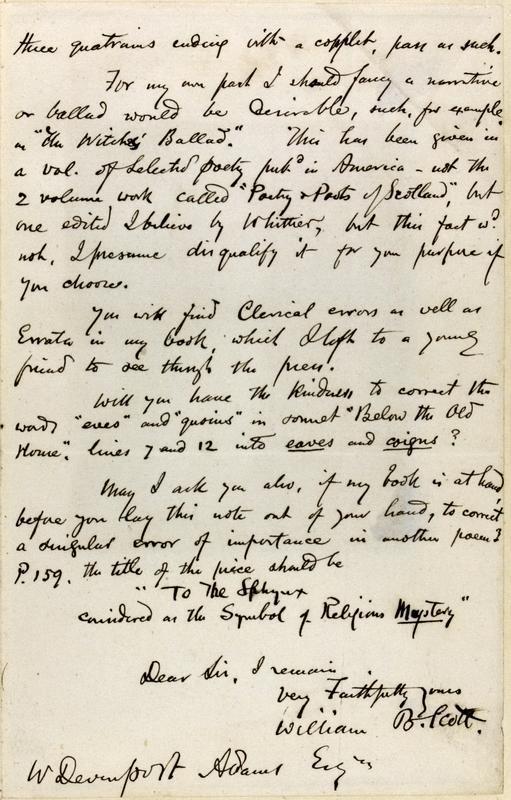 three quatrains ending with a copplet, pass as such.
For my own part I should fancy a narritive
or ballad would be desirable, such, for example,
as "The Witch's Ballad." This has been given in
a vol. of Selected Poetry pubd in America – not the
2 volume work called "Poetry & Poets of Scotland", but
one edited I believe by Whittier, but this fact wd
not, I presume disqualify it for your purpose if
you choose.
You will find Clerical errors as well as
Errata in my book, which I left to a young
friend to see through the press.
Will you have the kindness to correct the
words "eves" and "quoins" in sonnet "Below the Old
House", lines 7 and 12 into eaves and coigns?
May I ask you also, if my book is at hand
before you lay this note out of your hand, to correct
a singular error of importance in another poem?
P. 159. the title of the piece should be
"To The Sphynx
considered as the Symbol of Religious Mystery"
Dear Sir, I remain
Very Faithfully yours
William B. Scott.
W Devenport Adams Esqre